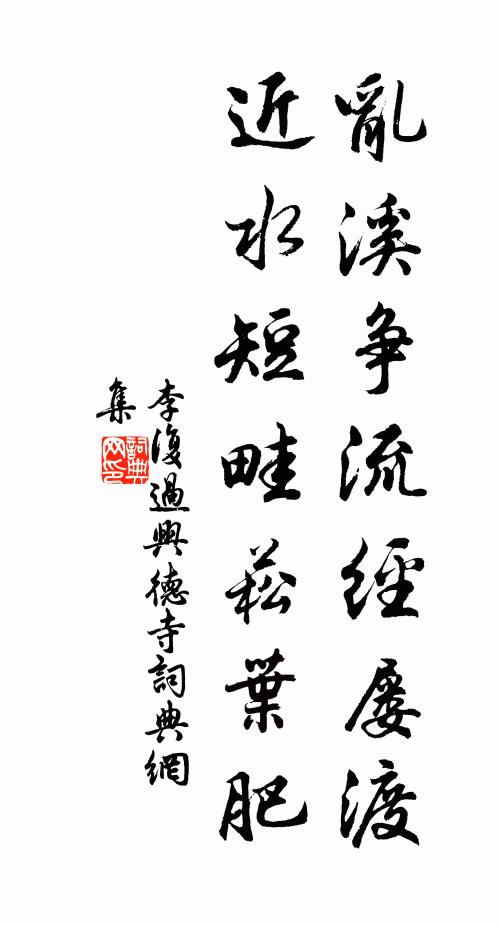 亂溪争流經屡渡
近水短畦菘葉肥
李復過興德寺詞典網
集
詞典网印